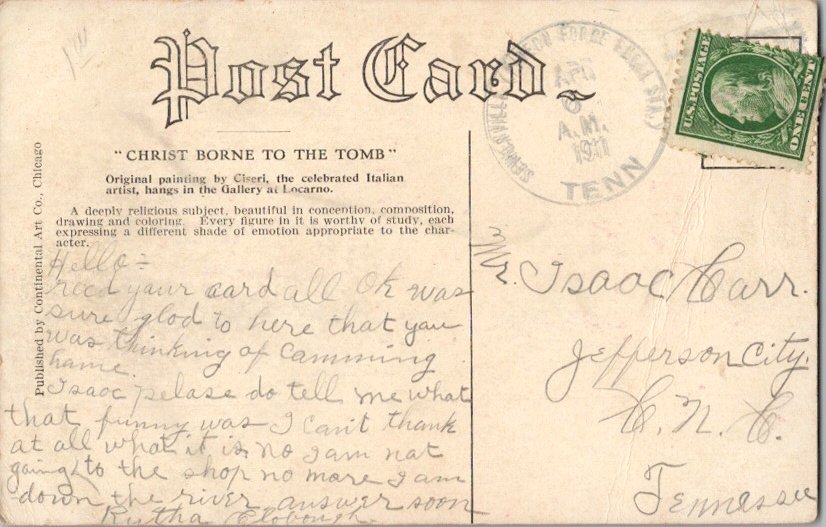 Post Card
"CHRIST BORNE TO THE TOMB"
Original painting by Ciseri, the celebrated Italian
artist, hangs in the Gallery at Locarno.
A deeply religious subject, beautiful in conception, composition,
drawing and coloring. Every figure in it is worthy of study, each
expressing a different shade of emotion appropriate to the char-
acter.
Published by Continental Art Co., Chicago
Hello-
recd your card all Ok was
sure glod to here that you
was thinking of camming
hame.
Isaac pelase do tell me what
that funny was I can't thank
at all what it is no I am nat
going to the shop no more I am
down the river answer soon
Rutha
SEVIERVILLE PIGEON FORGE
APR
6
A.M.
1911
TENN
U.S. POSTAGE
ONE CENT
Mr. Isaac Carr.
Jefferson City.
C. N. C.
Tennessee